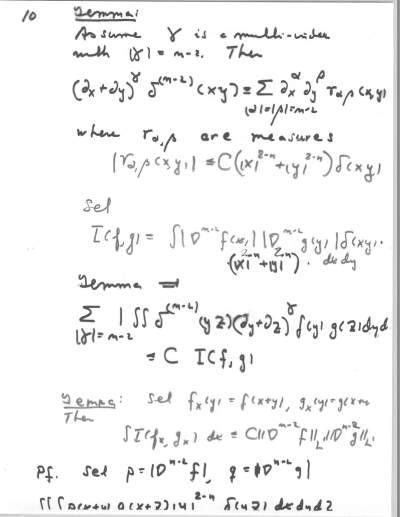 10 Lemma:
Assume γ is a multi-index
with |γ| = n-2. Then
(∂x+∂y)^γ δ^(n-2)(xy) = Σ_{|α|=|β|=n-2} ∂x^α ∂y^β r_{α,β}(x,y)
where r_{α,β} are measures
|r_{α,β}(x,y)| ≤ C(|x|^{2-n}+|y|^{2-n})δ(xy)
Set
I(f,g) = ∫|D^{n-2}f(x)||D^{n-2}g(y)|δ(xy)·
(|x|^{2-n}+|y|^{2-n}) · dxdy
Lemma ⇒
Σ_{|γ|=n-2} |∫∫ δ^(n-2)(yz)(∂y+∂z)^γ f(y) g(z)dydz|
≤ C I(f,g)
Lemma: Set f_x(y) = f(x+y), g_x(y)=g(x+y)
Then
∫I(f_x, g_x) dx ≤ C||D^{n-2}f||_{L}·||D^{n-2}g||_{L}
Pf. Set p=|D^{n-2}f|, q=|D^{n-2}g|
∫∫∫p(x+y) q(x+z)|y|^{2-n} δ(yz) dxdydz